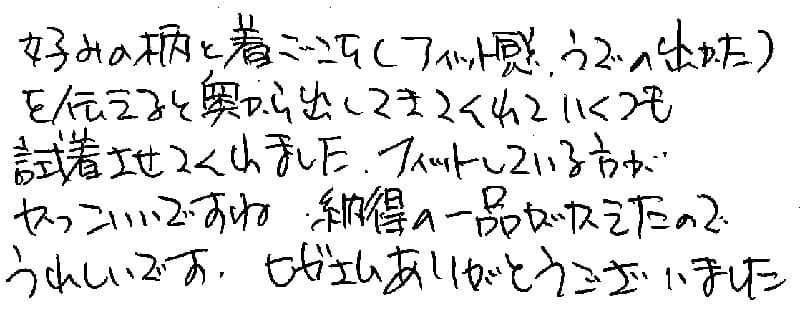 好みの柄と着ごこち(フィット感、うでの出かた)
を伝えると奥から出してきてくれていくつも
試着させてくれました。フィットしている方が
かっこいいですね 納得の一品がかえたので
うれしいです。 ありがとうございました